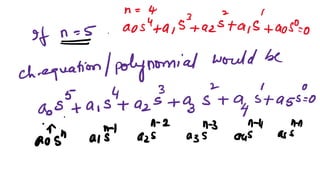 n = 4
a0s⁴+a₁s³+a₂s²+a₁s¹+a₀s⁰=0
If n=5.
ch-equation/polynomial would be
a₀s⁵+a₁s⁴+a₂s³+a₃s²+a₄s¹+a₅s⁰=0
↑
a0sⁿ a₁sⁿ⁻¹ a₂sⁿ⁻² a₃sⁿ⁻³ a₄sⁿ⁻⁴ a₅sⁿ⁻ⁿ